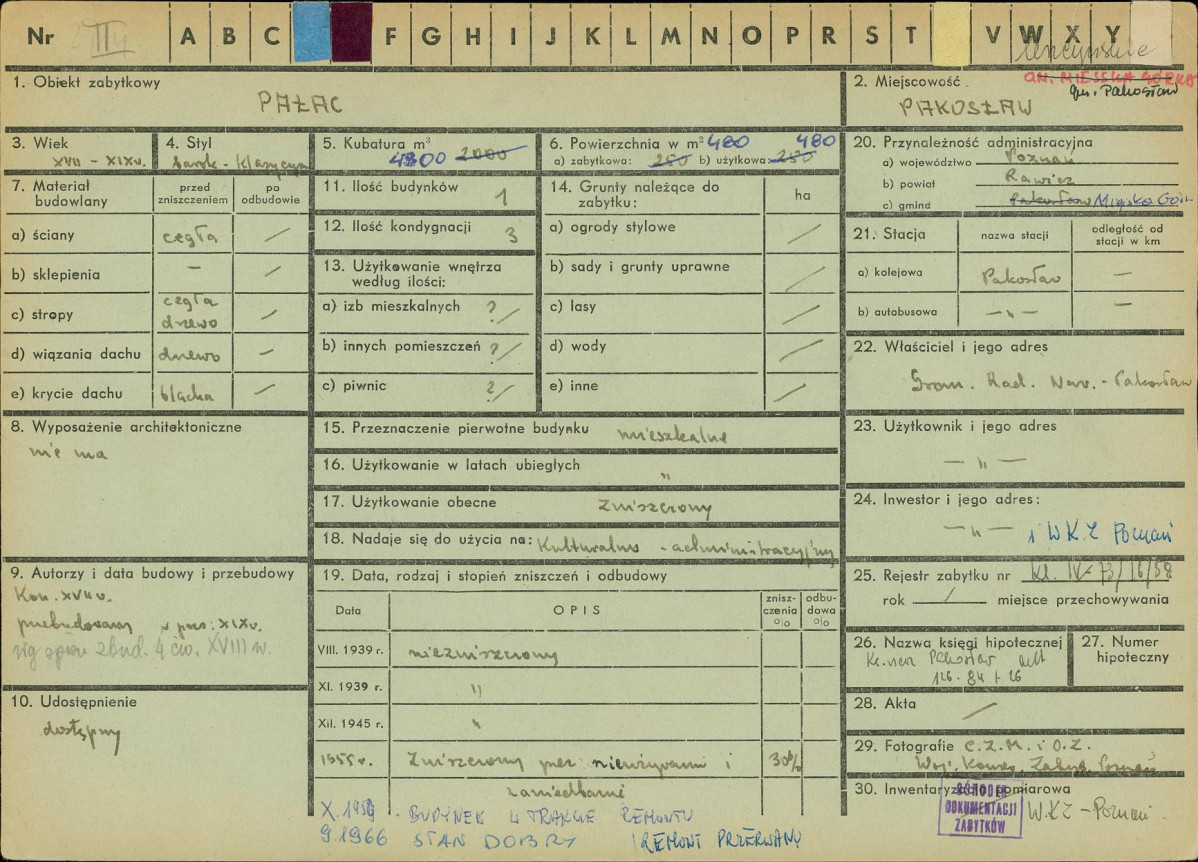 Nr II A B C F G H I J K L M N O P R S T V W X Y
leszczyńskie
1. Obiekt zabytkowy
PAŁAC
2. Miejscowość
GM. MIEJSKA GÓRKA
gm. Pakosław
PAKOSŁAW
3. Wiek
XVII – XIXw.
4. Styl
barok - klasycyzm
5. Kubatura m³
4800 2000
6. Powierzchnia w m² 480 480
a) zabytkowa: 250 b) użytkowa: 250
20. Przynależność administracyjna
a) województwo Poznań
b) powiat Rawicz
c) gmina Pakosław Miejska Górka
7. Materiał budowlany
przed zniszczeniem
po odbudowie
a) ściany cegła /
b) sklepienia – /
c) stropy cegła drzewo /
d) wiązania dachu drzewo –
e) krycie dachu blacha /
8. Wyposażenie architektoniczne
nie ma
9. Autorzy i data budowy i przebudowy
Kon. XVII w.
przebudowany w pocz. XIXw.
wg spisu zbud. 4 ćw. XVIII w.
10. Udostępnienie
dostępny
11. Ilość budynków 1
12. Ilość kondygnacji 3
13. Użytkowanie wnętrza według ilości:
a) izb mieszkalnych ? /
b) innych pomieszczeń ? /
c) piwnic ? /
14. Grunty należące do zabytku:
ha
a) ogrody stylowe /
b) sady i grunty uprawne /
c) lasy /
d) wody /
e) inne /
15. Przeznaczenie pierwotne budynku mieszkalne
16. Użytkowanie w latach ubiegłych "
17. Użytkowanie obecne Zniszczony
18. Nadaje się do użycia na: Kulturalno - administracyjny
19. Data, rodzaj i stopień zniszczeń i odbudowy
Data
OPIS
zniszczenia %
odbudowa %
VIII. 1939 r. niezniszczony
XI. 1939 r. "
XII. 1945 r. "
1955 r. Zniszczony przez nieużywanie i 30%
zaniedbanie
X. 1959 . BUDYNEK W TRAKCIE REMONTU
9.1966 STAN DOBRY REMONT PRZERWANY
21. Stacja
nazwa stacji
odległość od stacji w km
a) kolejowa Pakosław –
b) autobusowa – " – –
22. Właściciel i jego adres
Grom. Rad. Nar. - Pakosław
23. Użytkownik i jego adres
– " –
24. Inwestor i jego adres:
– " – i WKZ Poznań
25. Rejestr zabytku nr kl. IV-73/16/58
rok / miejsce przechowywania
26. Nazwa księgi hipotecznej
Pakosław
27. Numer hipoteczny
28. Akta /
29. Fotografie C.Z.M. i O.Z.
Woj. Konser. Zabyt. Poznań
30. Inwentaryzacja pomiarowa
WKZ – Poznań.
OŚRODEK
DOKUMENTACJI
ZABYTKÓW